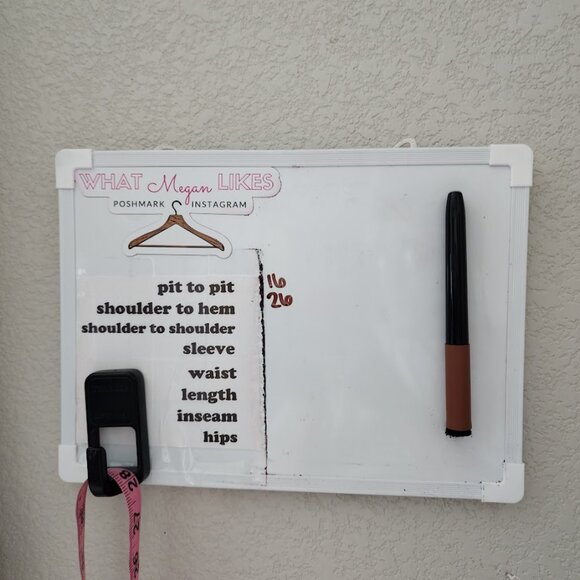 WHAT Megan LIKES
POSHMARK INSTAGRAM
pit to pit 16
shoulder to hem 26
shoulder to shoulder
sleeve
waist
length
inseam
hips
28
27